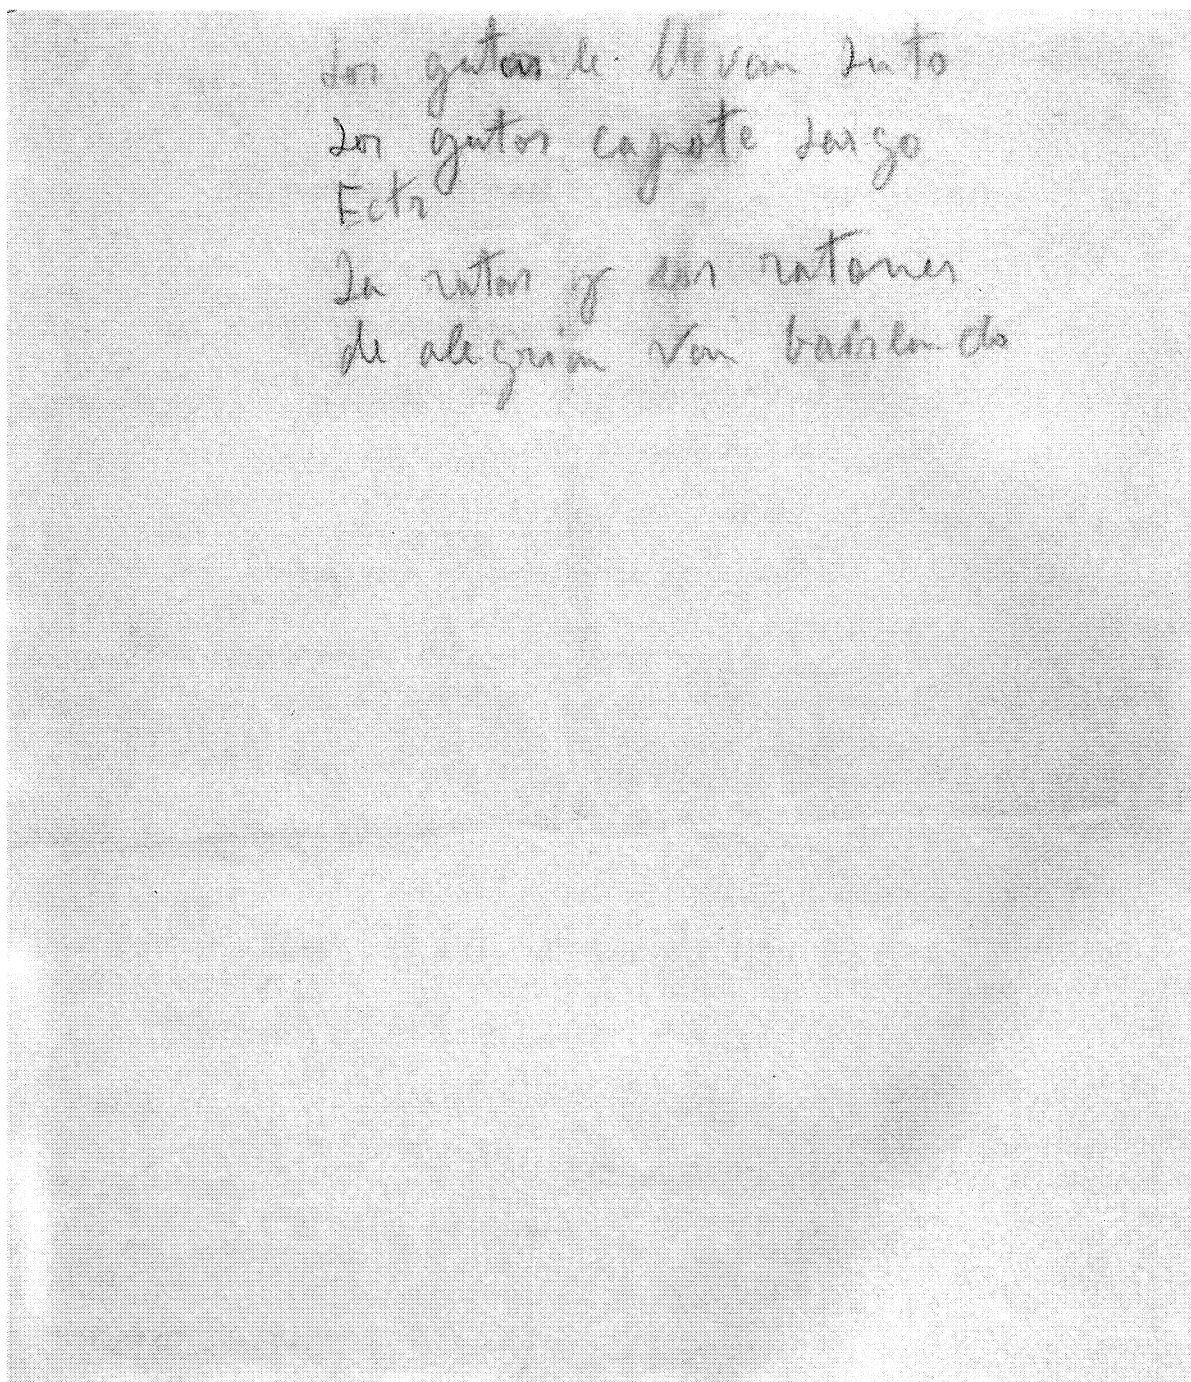 Los gatos le llevan luto
Los gatos capote largo
Ectr
La ratas y los ratones
de alegrian van bailando